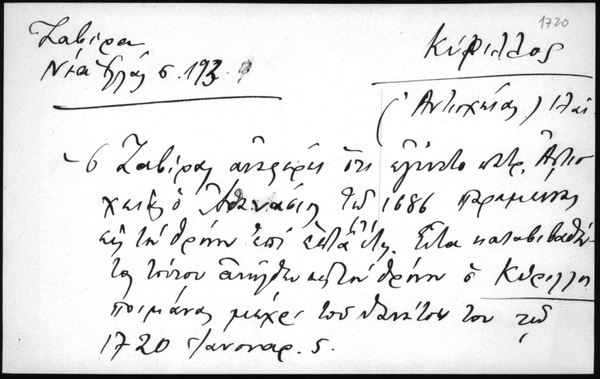 1720
Ζαβίρα
Νέα Ἑλλάς σ. 193
Κύριλλος
(Ἀντιοχείας)
- ὁ Ζαβίρας ἀναφέρει ὅτι ἐγένετο πατρ. Ἀντιο
χείας ὁ Ἀθανάσιος τῷ 1686 παραμείνας
εἰς τὸν θρόνον ἐπὶ ἑπτὰ ἔτη. Εἶτα καταβιβασθέν
τος τούτου ἀνῆλθεν εἰς τὸν θρόνον ὁ Κύριλλος
ποιμάνας μέχρι τοῦ θανάτου του τῷ
1720 Ἰανουαρ. 5.